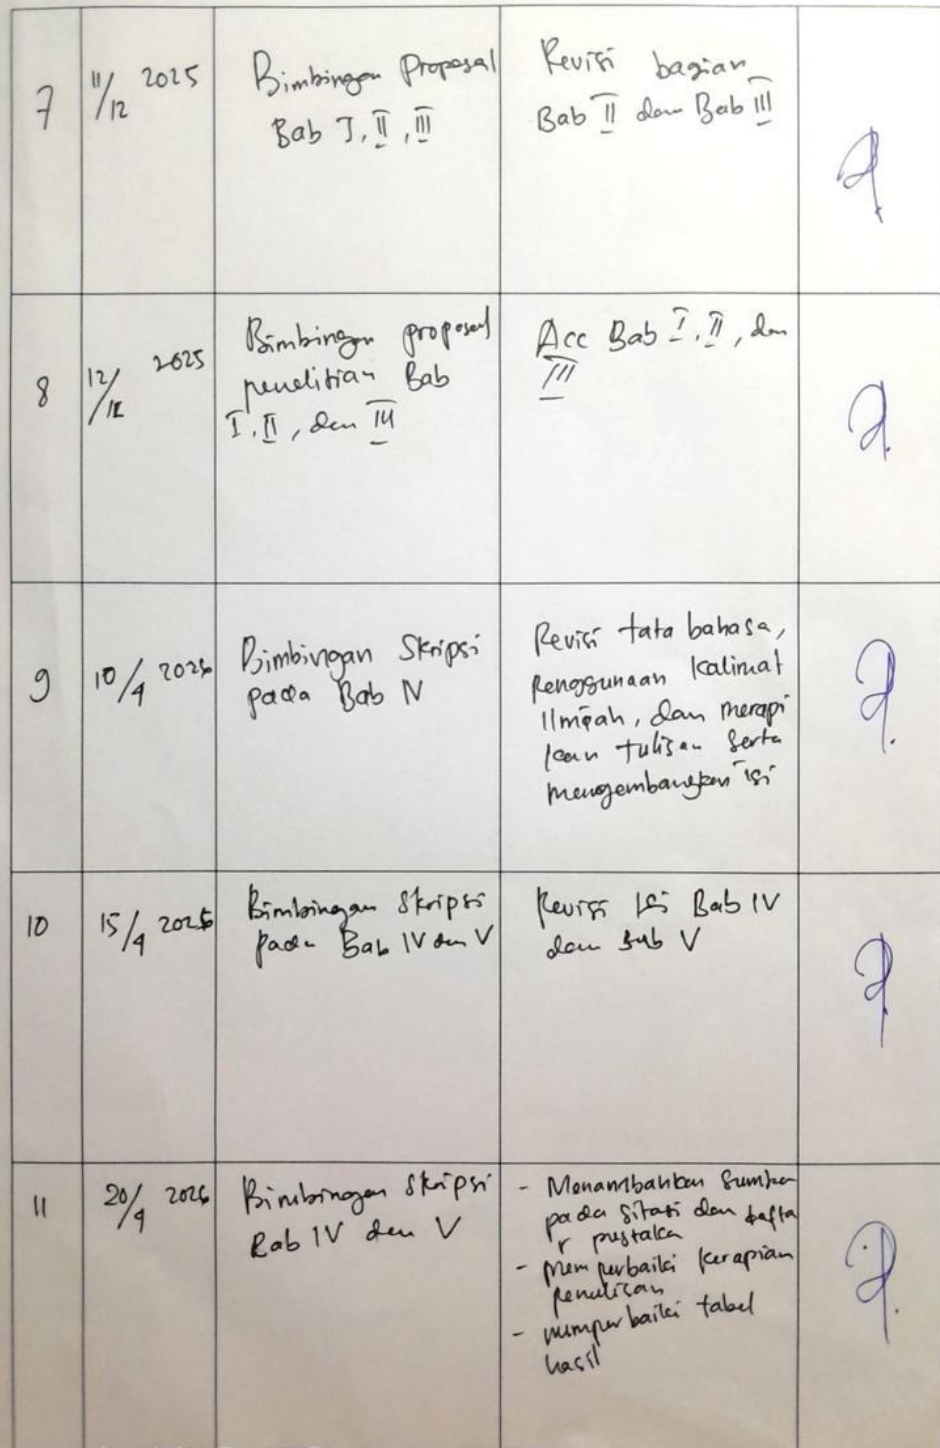 7
11/12 2025
Bimbingan Proposal
Bab I, II, III
Revisi bagian
Bab II dan Bab III
8
12/12 2025
Bimbingan proposal
penelitian Bab
I, II, dan III
Acc Bab I, II, dan
III
9
10/4 2026
Bimbingan Skripsi
pada Bab IV
Revisi tata bahasa,
Penggunaan Kalimat
Ilmiah, dan merapi
kan tulisan serta
mengembangkan isi
10
15/4 2026
Bimbingan Skripsi
pada Bab IV dan V
Revisi Isi Bab IV
dan Bab V
11
20/4 2026
Bimbingan Skripsi
Bab IV dan V
- Menambahkan Sumber
pada Sitasi dan dafta
r pustaka
- Memperbaiki Kerapian
Penulisan
- memperbaiki tabel
hasil